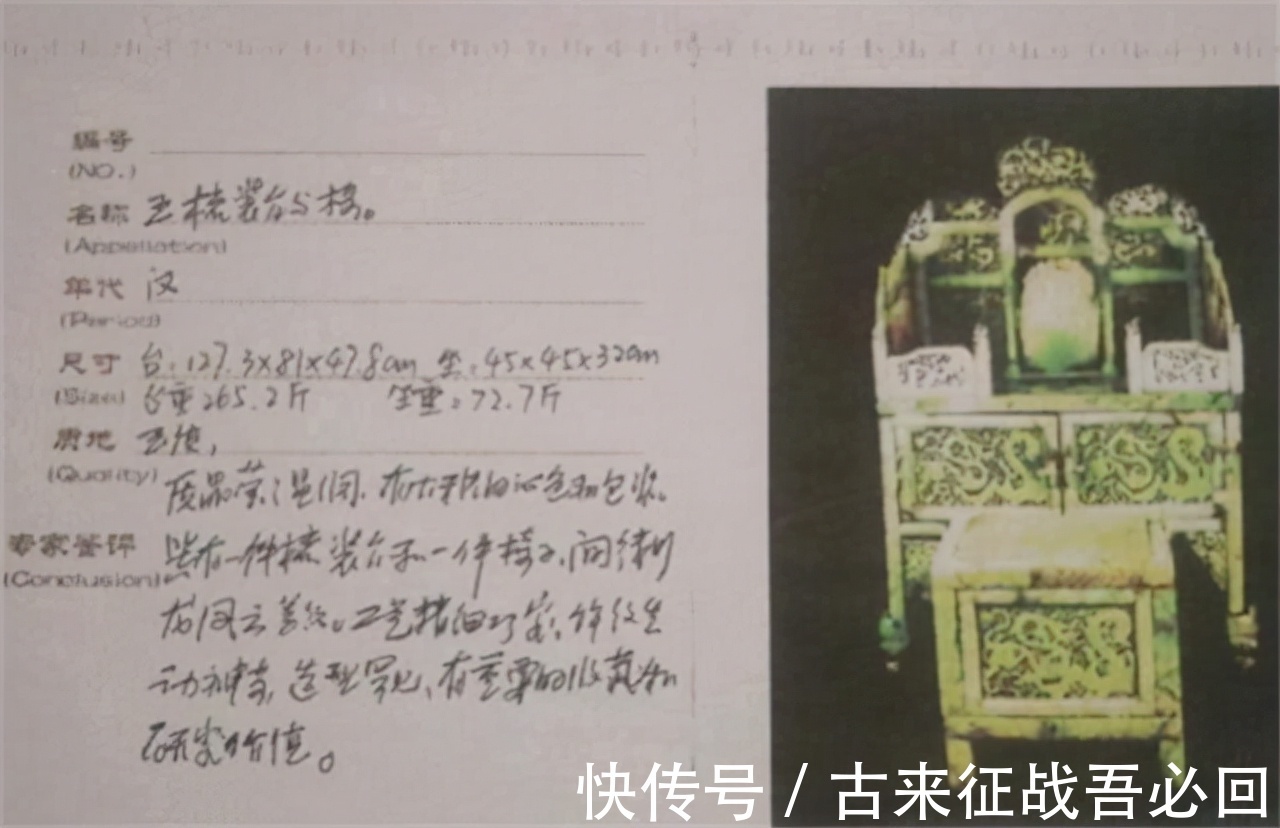 编号
(NO.)
名称 玉梳装台与椅。
(Appellation)
年代 汉
(Period)
尺寸 台:127.3×81×47.8cm 坐:45×45×32cm
(Size) 台重265.2斤 坐重:72.7斤
质地 玉质,
(Quality) 质晶莹温润、有大开门的沁色和包浆。
专家签评 此有一件梳装台和一件椅子,
(Conclusion)
龙凤云 纹。工艺精
动神奇,造型罕见、有重要的收藏和
研究价值。
快传号 / 古来征战吾必回